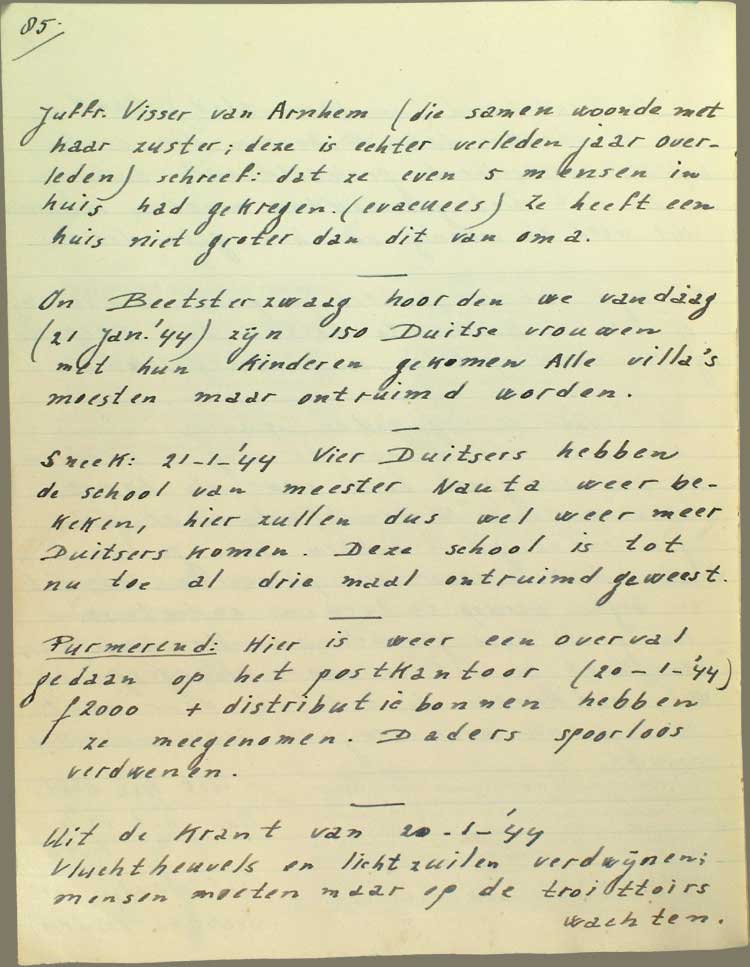 85.
Juffr. Visser van Arnhem (die samen woonde met
haar zuster; deze is echter verleden jaar over-
leden) schreef: dat ze even 5 mensen in
huis had gekregen. (evacuees) Ze heeft een
huis niet groter dan dit van oma.
On Beetsterzwaag hoorden we vandaag
(21 Jan. '44) zijn 150 Duitse vrouwen
met hun kinderen gekomen Alle villa's
moesten maar ontruimd worden.
Sneek: 21-1-'44 Vier Duitsers hebben
de school van meester Nauta weer be-
keken, hier zullen dus wel weer meer
Duitsers komen. Deze school is tot
nu toe al drie maal ontruimd geweest.
Purmerend: Hier is weer een overval
gedaan op het postkantoor (20-1-'44)
f 2000 + distributie bonnen hebben
ze meegenomen. Daders spoorloos
verdwenen.
Uit de Krant van 20-1-'44
Vluchtheuvels en lichtzuilen verdwijnen;
mensen moeten maar op de troittoirs
wachten.